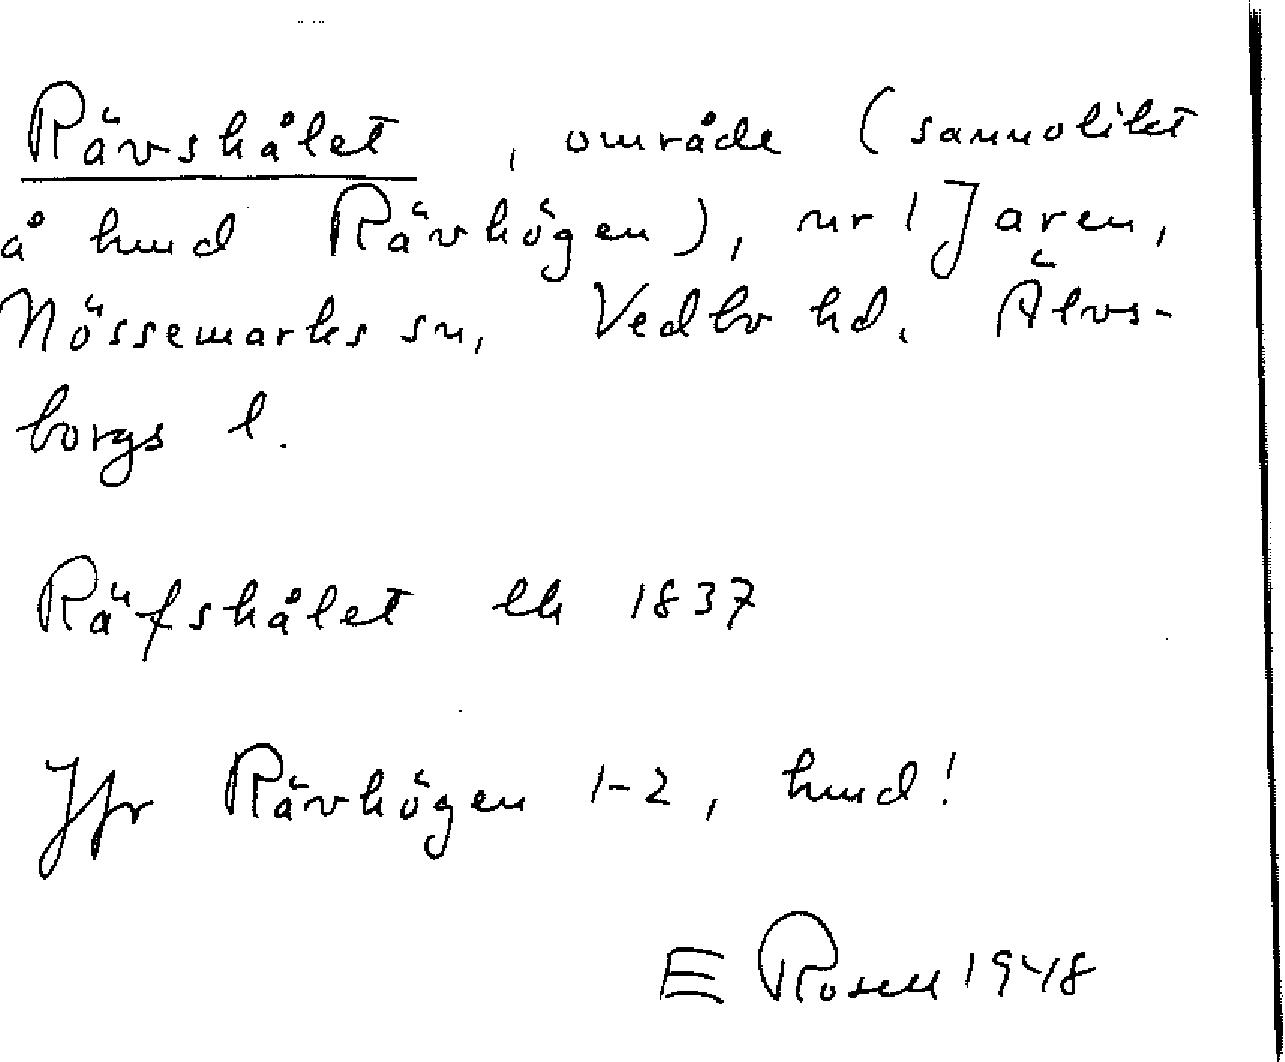 Rävshålet, område (sannolikt
å hmd Rävhögen), nr 1 Jaren,
Nössemarks sn, Vedbo hd. Älvs-
borgs l.
Räfshålet lh 1837
Jfr Rävhögen 1-2, hmd!
E Rosell 1948